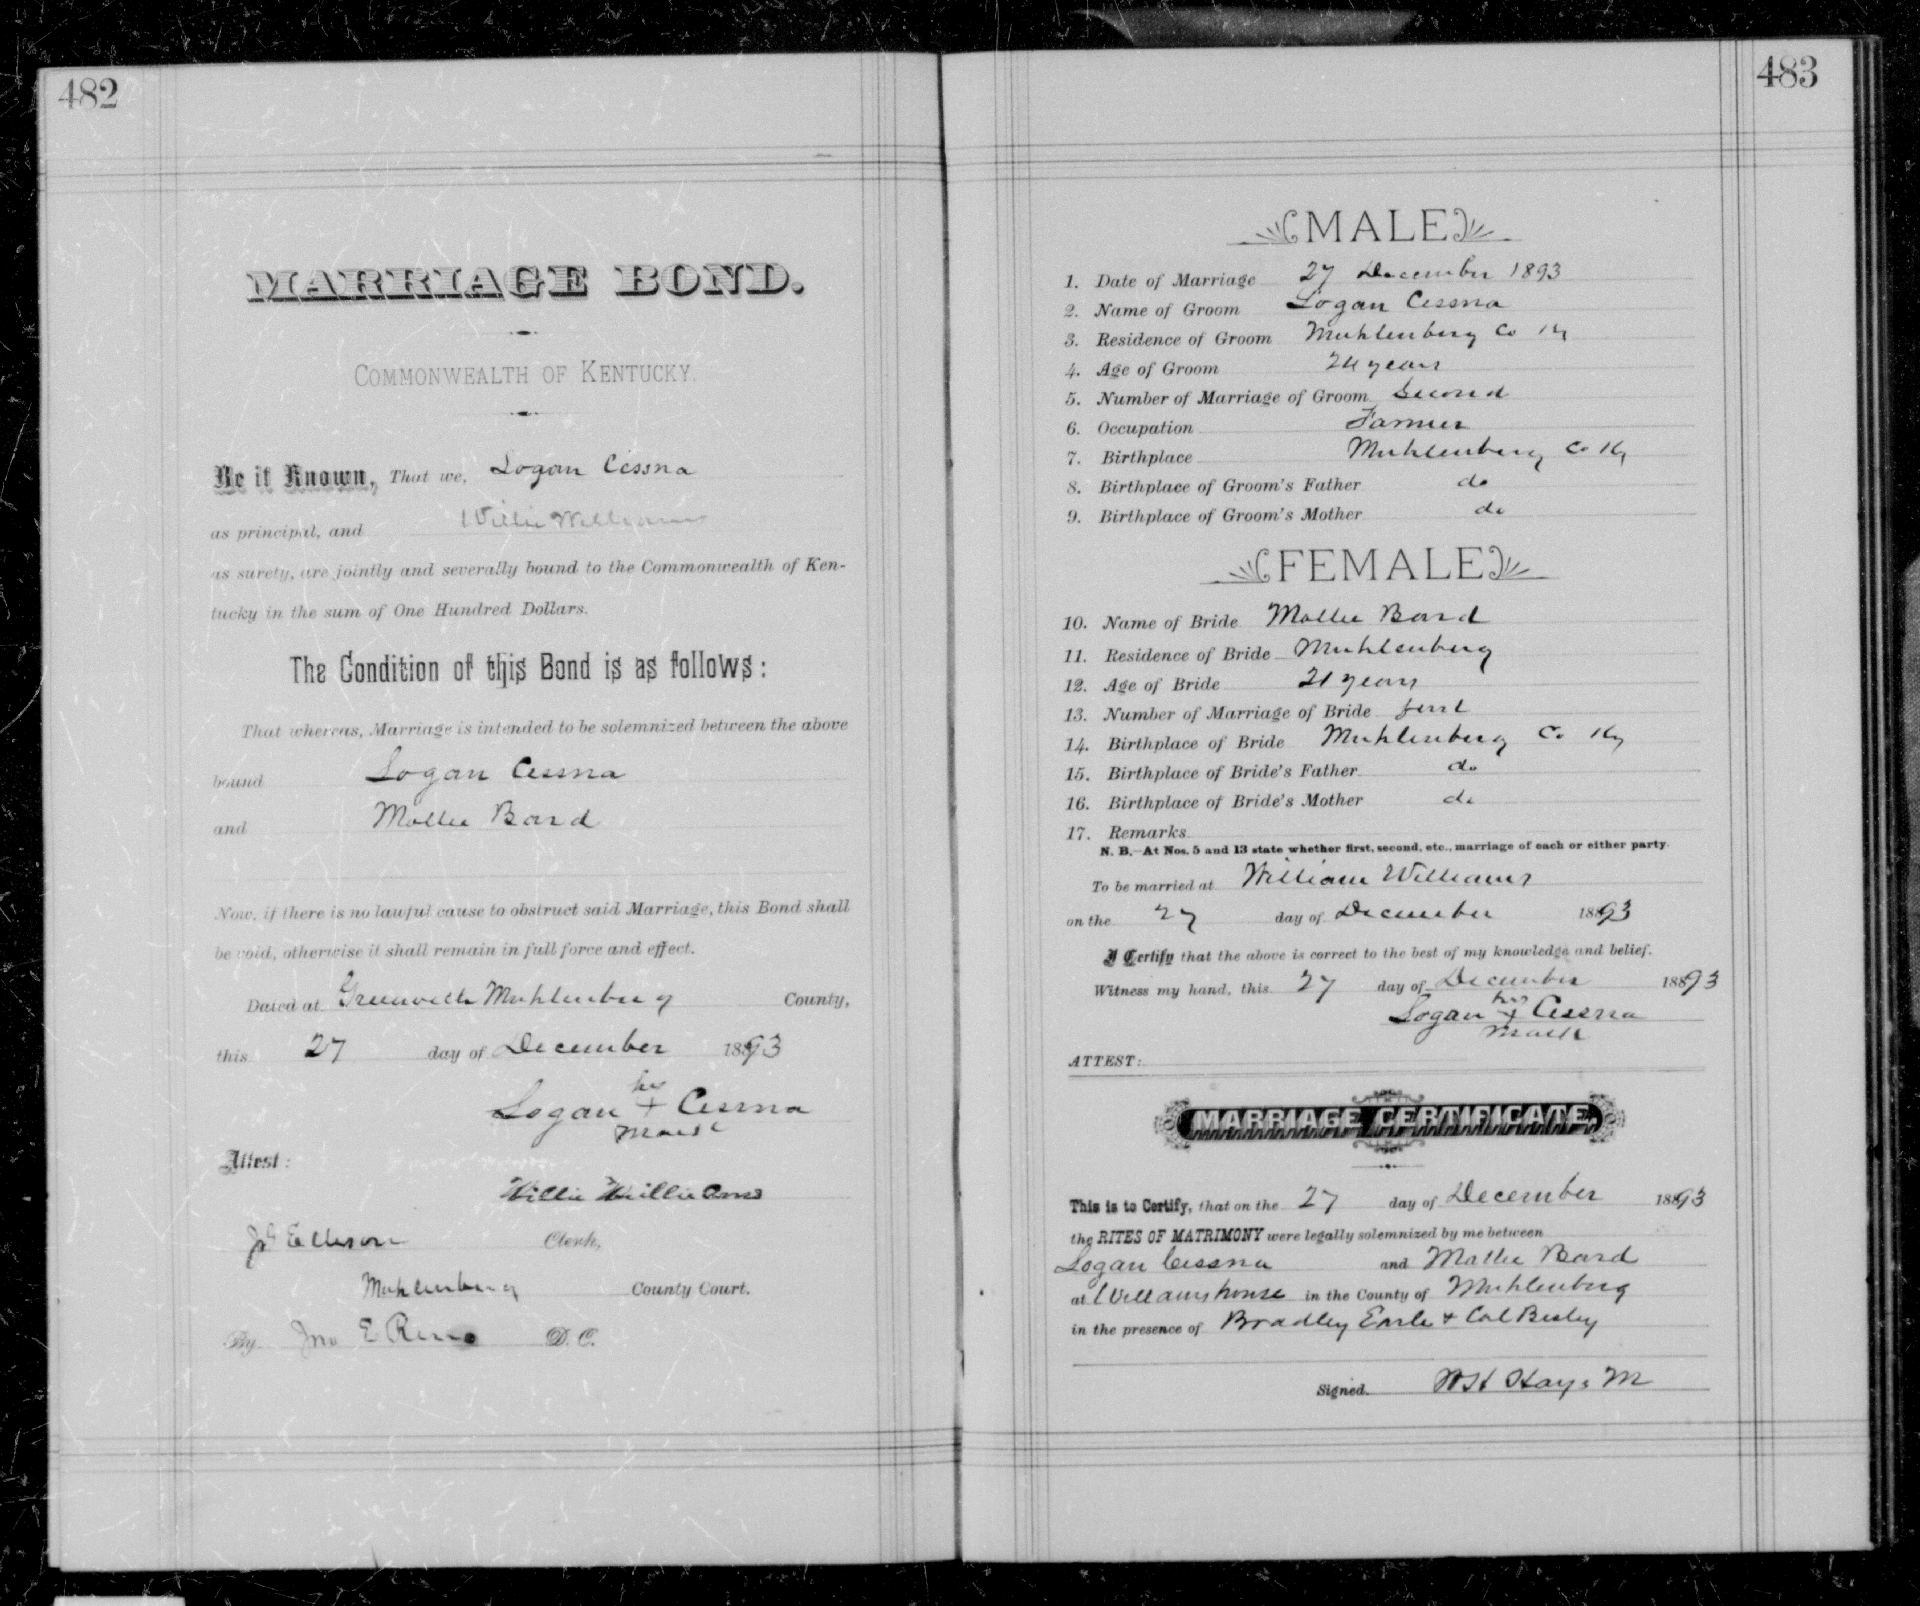 482
MARRIAGE BOND.
COMMONWEALTH OF KENTUCKY.
Be it Known, That we, Logan Cessna
as principal, and Willie Williams
as surety, are jointly and severally bound to the Commonwealth of Ken-
tucky in the sum of One Hundred Dollars.
The Condition of this Bond is as follows:
That whereas, Marriage is intended to be solemnized between the above
bound Logan Cessna
and Mollie Bard
Now, if there is no lawful cause to obstruct said Marriage, this Bond shall
be void, otherwise it shall remain in full force and effect.
Dated at Greenville Muhlenberg County,
this 27 day of December 1893
his
Logan + Cessna
mark
Attest:
Willie Williams
Ellison Clerk,
Muhlenberg County Court.
By Jno E Reno D. C.
483
MALE
1. Date of Marriage 27 December 1893
2. Name of Groom Logan Cessna
3. Residence of Groom Muhlenberg Co Ky
4. Age of Groom 24 years
5. Number of Marriage of Groom Second
6. Occupation Farmer
7. Birthplace Muhlenberg Co Ky
8. Birthplace of Groom's Father do
9. Birthplace of Groom's Mother do
FEMALE
10. Name of Bride Mollie Bard
11. Residence of Bride Muhlenberg
12. Age of Bride 21 years
13. Number of Marriage of Bride first
14. Birthplace of Bride Muhlenberg Co Ky
15. Birthplace of Bride's Father do
16. Birthplace of Bride's Mother do
17. Remarks
N. B.—At Nos. 5 and 13 state whether first, second, etc., marriage of each or either party.
To be married at William Williams
on the 27 day of December 1893
I Certify that the above is correct to the best of my knowledge and belief.
Witness my hand, this 27 day of December 1893
his
Logan + Cessna
mark
ATTEST:
MARRIAGE CERTIFICATE.
This is to Certify, that on the 27 day of December 1893
the RITES OF MATRIMONY were legally solemnized by me between
Logan Cessna and Mollie Bard
at Williams house in the County of Muhlenberg
in the presence of Bradley Earle + Cal Besley
Signed. W H Hays M